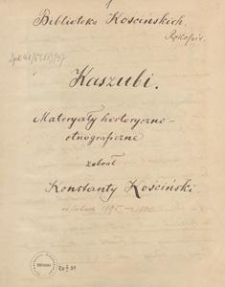 Biblioteka Kościńskich.
Rękopis.
Kaszubi.
Materyały historyczno-
etnograficzne
zebrał
Konstanty Kościński
w latach